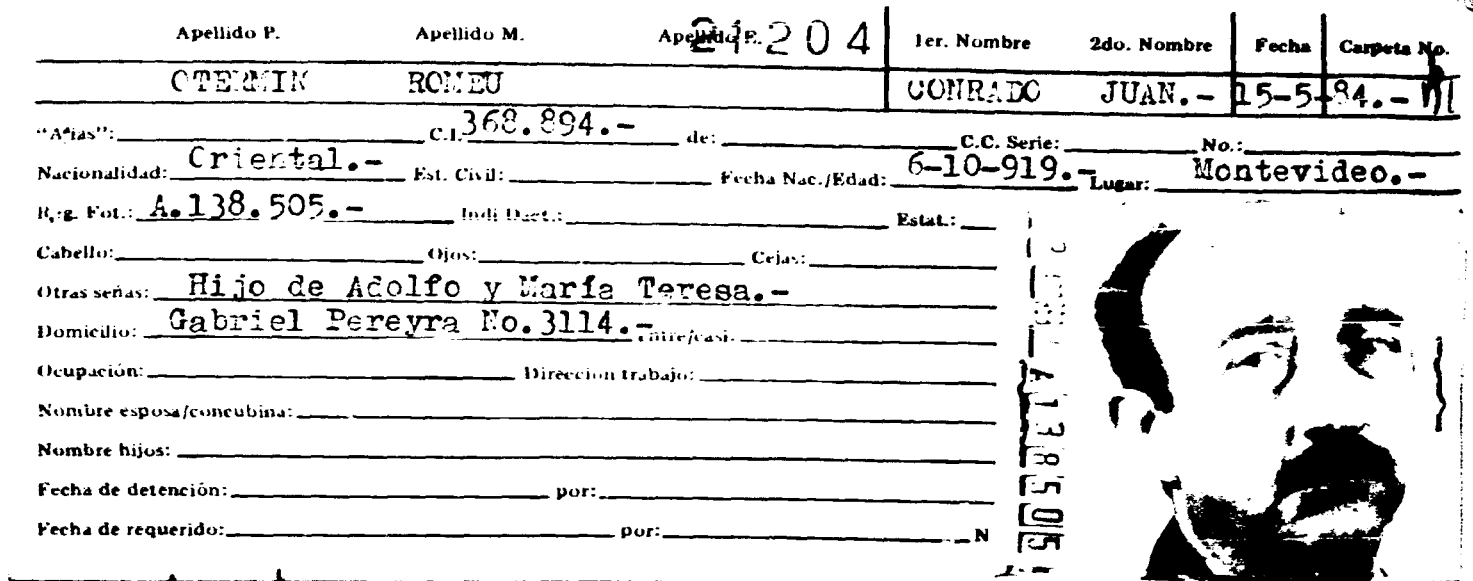 Apellido P. Apellido M. Apellido E. 21204 1er. Nombre 2do. Nombre Fecha Carpeta No.
OTERMIN ROMEU CONRADO JUAN.- 15-5-84.-
"Alias": C.I. 368.894.- de: C.C. Serie: No.:
Nacionalidad: Oriental.- Est. Civil: Fecha Nac./Edad: 6-10-919.- Lugar: Montevideo.-
Reg. Fot.: A.138.505.- Indi Dact.: Estat.:
Cabello: Ojos: Cejas:
Otras señas: Hijo de Adolfo y María Teresa.-
Domicilio: Gabriel Pereyra No.3114.- Entre/casi:
Ocupación: Direccion trabajo:
Nombre esposa/concubina:
Nombre hijos:
Fecha de detención: por:
Fecha de requerido: por: N
A138505